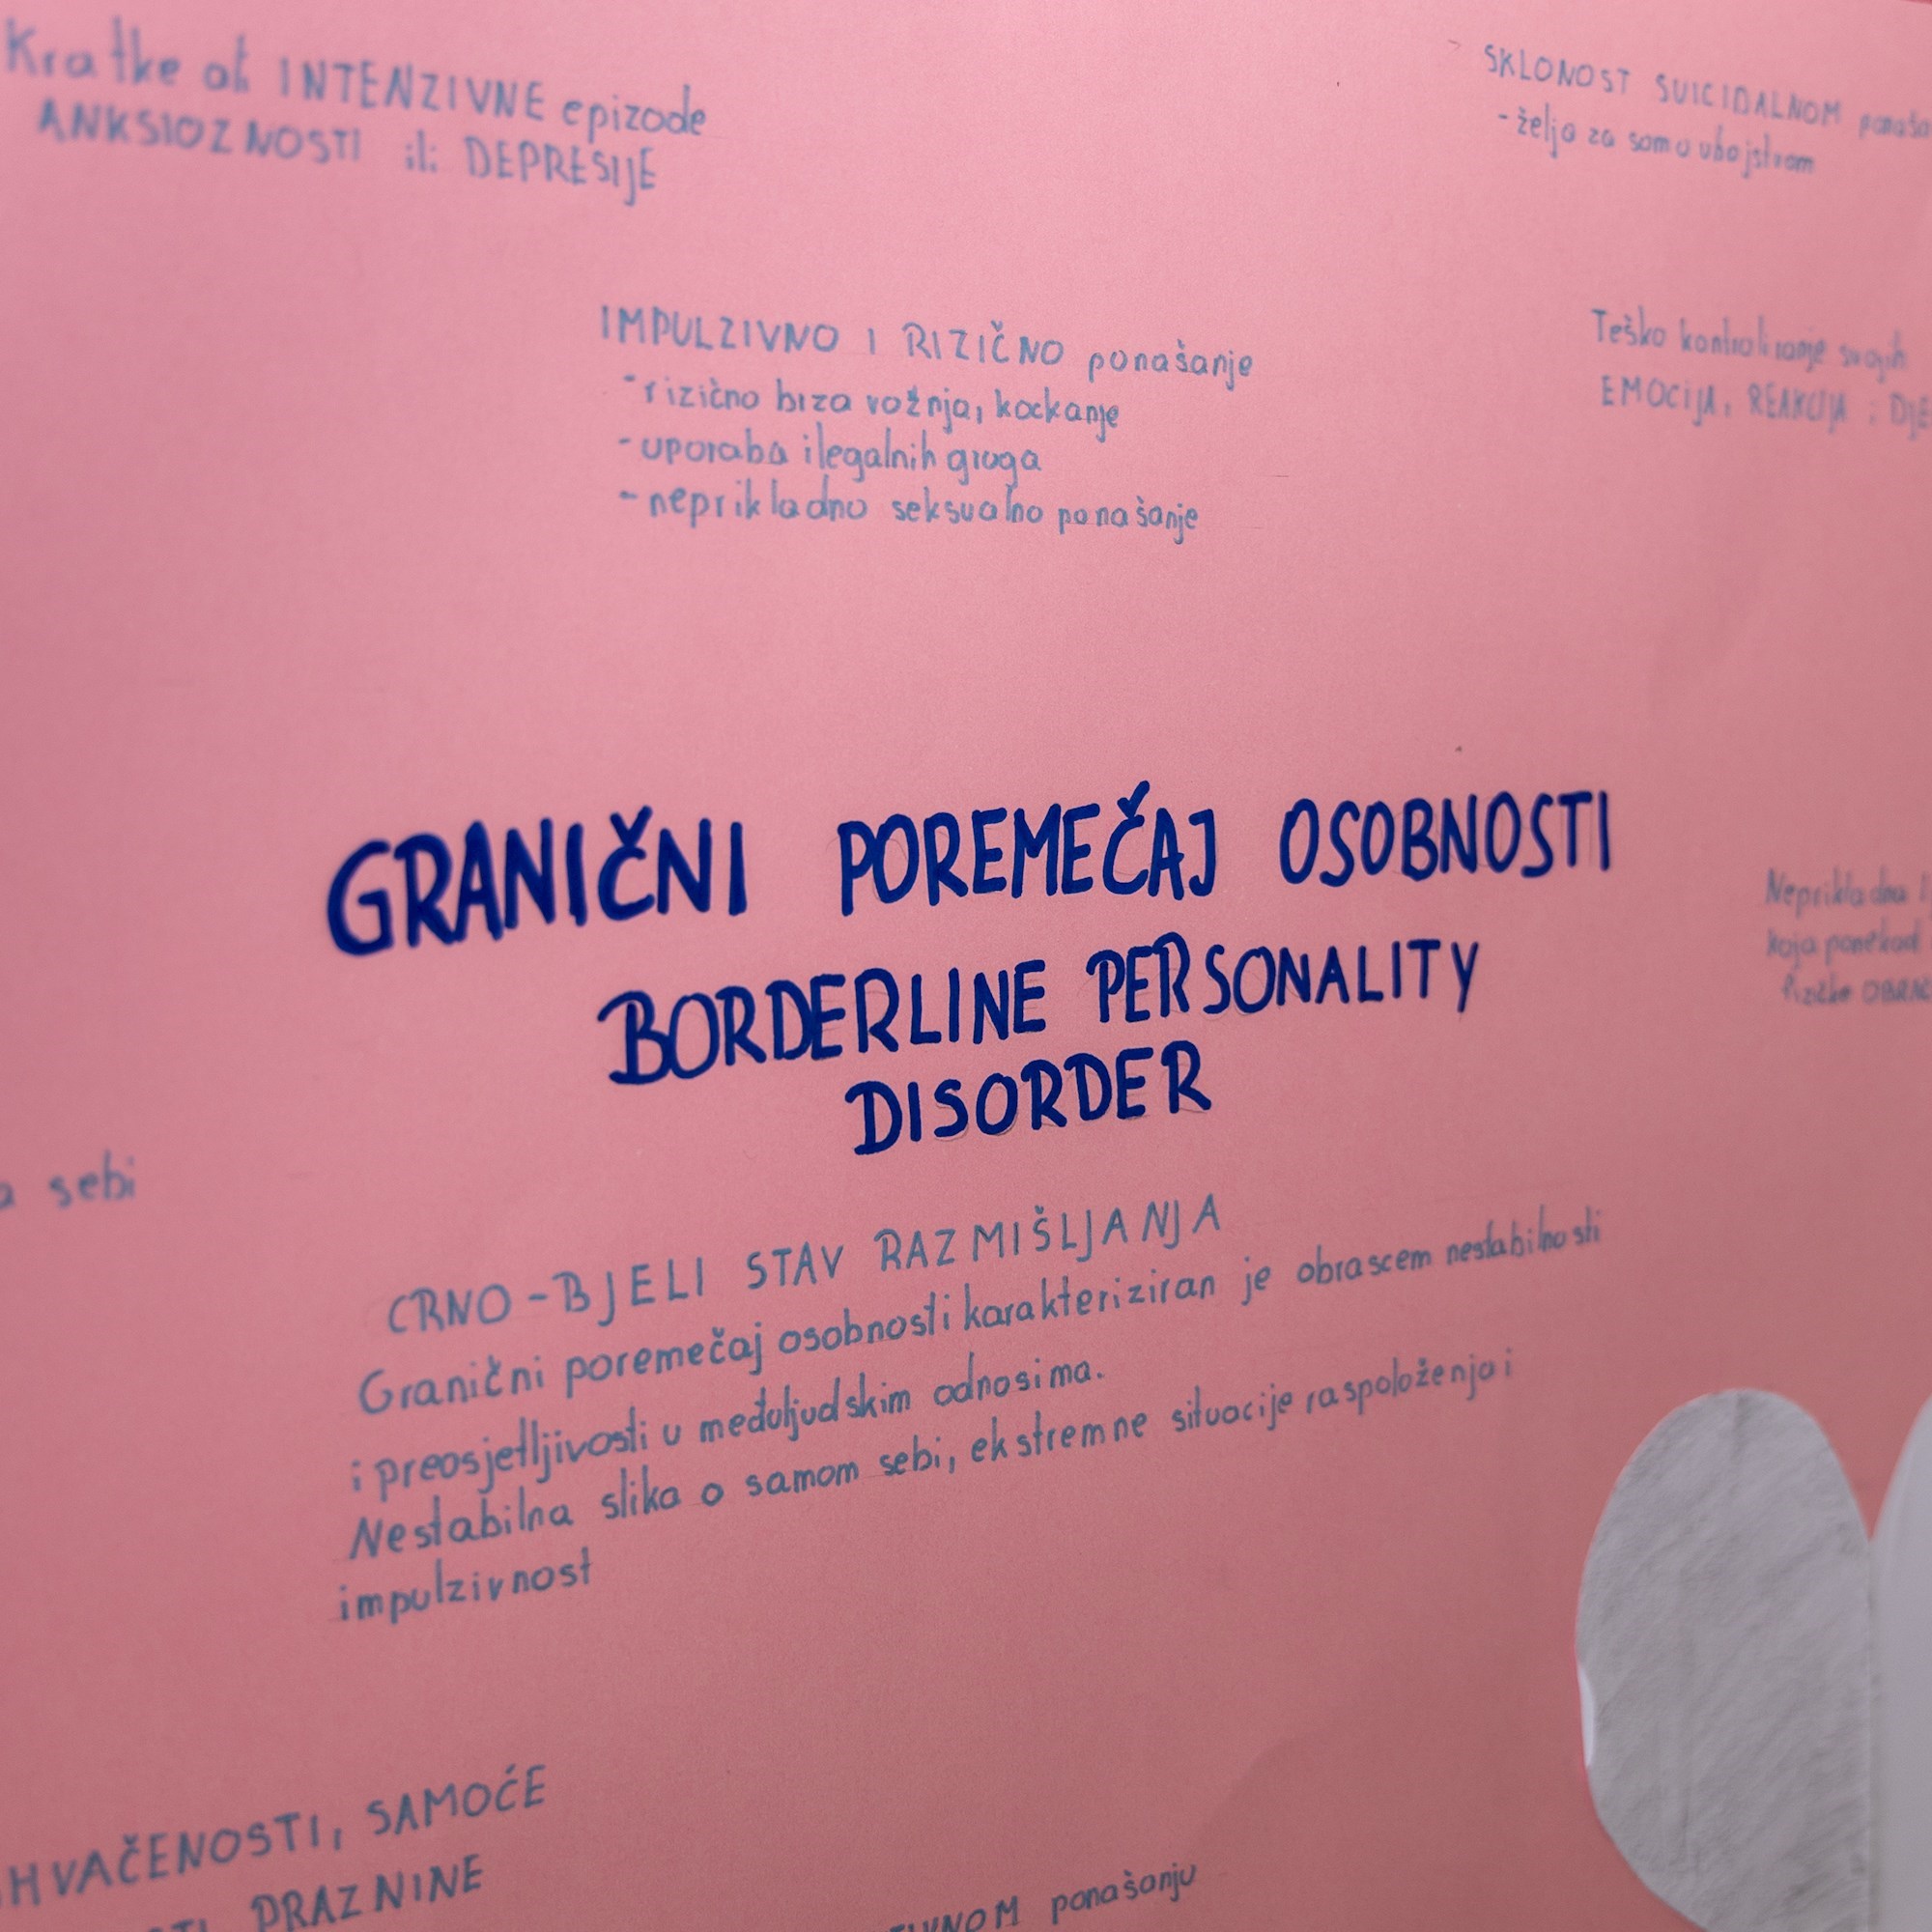 Kratke ali INTENZIVNE epizode
ANKSIOZNOSTI ili DEPRESIJE
SKLONOST SUICIDALNOM
-želja za samoubojstvom
IMPULZIVNO I RIZIČNO ponašanje
-rizično brza vožnja, kockanje
-uporaba ilegalnih groga
-neprikladno seksualno ponašanje
Teško kontroliranje svojih
EMOCIJA, REAKCIJA i
GRANIČNI POREMEČAJ OSOBNOSTI
BORDERLINE PERSONALITY
DISORDER
Neprikladna
koja ponekad
fizičke
sebi
CRNO-BJELI STAV RAZMIŠLJANJA
Granični poremečaj osobnosti karakteriziran je obrascem nestabilnosti
i preosjetljivosti u međuljudskim odnosima.
Nestabilna slika o samom sebi, ekstremne situacije raspoloženja i
impulzivnost
HVAČENOSTI, SAMOĆE
PRAZNINE
ponašanju